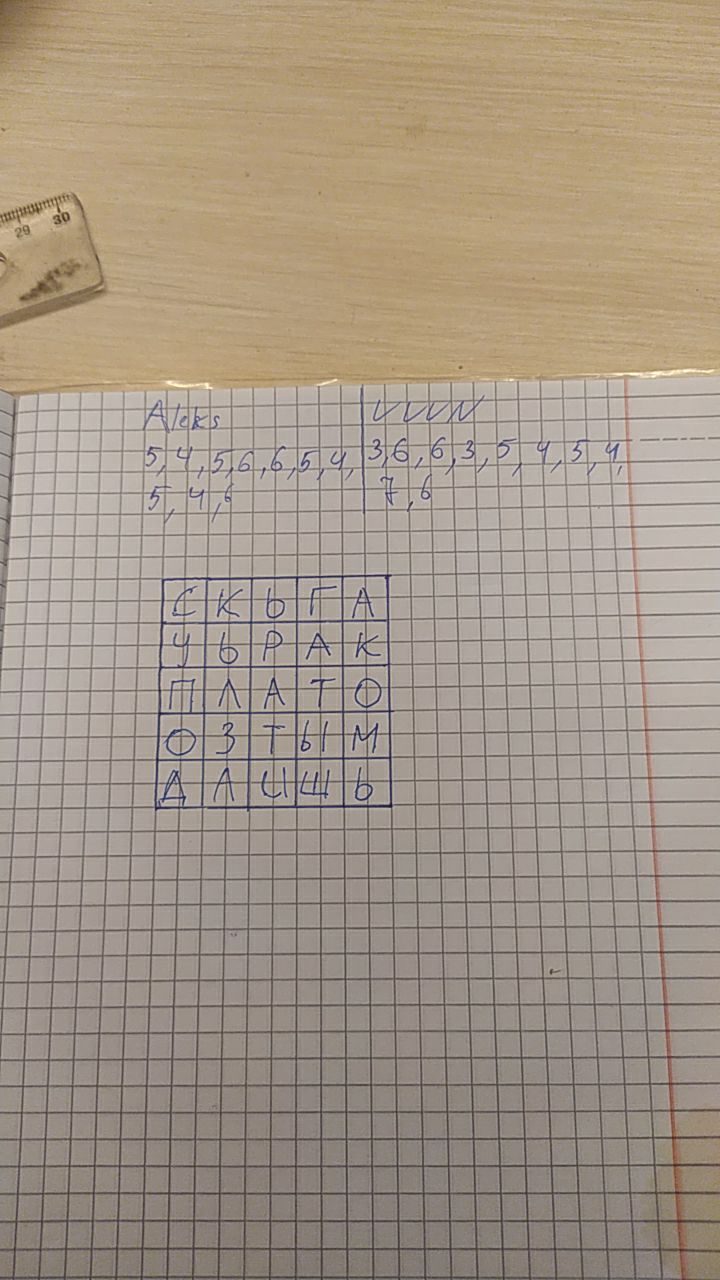 29 30
Aleks VVVN
5, 4, 5, 6, 6, 5, 4, 3, 6, 6, 3, 5, 4, 5, 4,
5, 4, 6 7, 6
С К Ь Г А
У Ь Р А К
П Л А Т О
О З Т Ы М
Д Л И Щ Ь